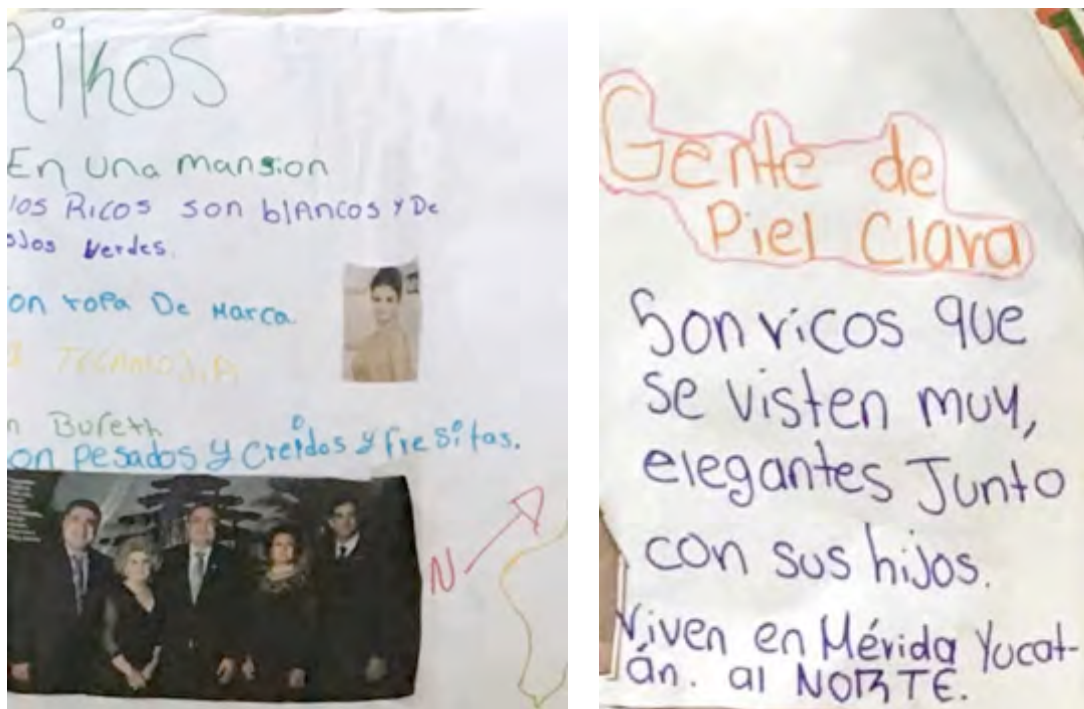 Rikos
En una mansion
los Ricos son blancos y De
ojos verdes.
on ropa De Marca.
n Bufeth
on pesados y creídos y fresitas.
N
Gente de
Piel Clara
Son ricos que
se visten muy,
elegantes Junto
con sus hijos.
Viven en Mérida Yucat-
án. al NORTE.